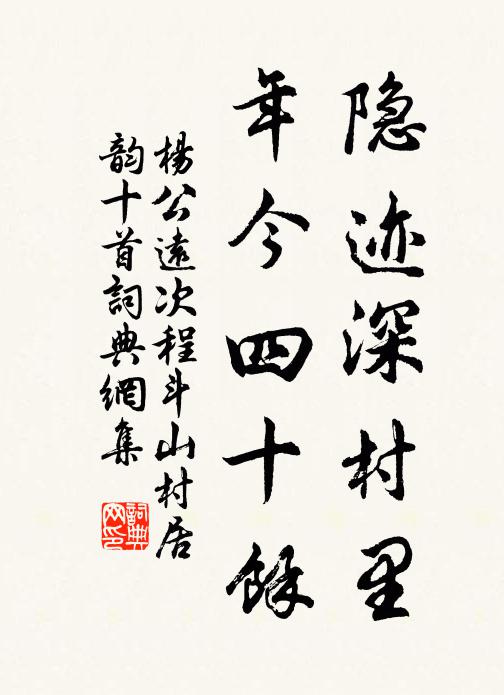 隐迹深村里
年今四十餘
楊公遠次程斗山村居
韵十首詞典網集
詞典网印